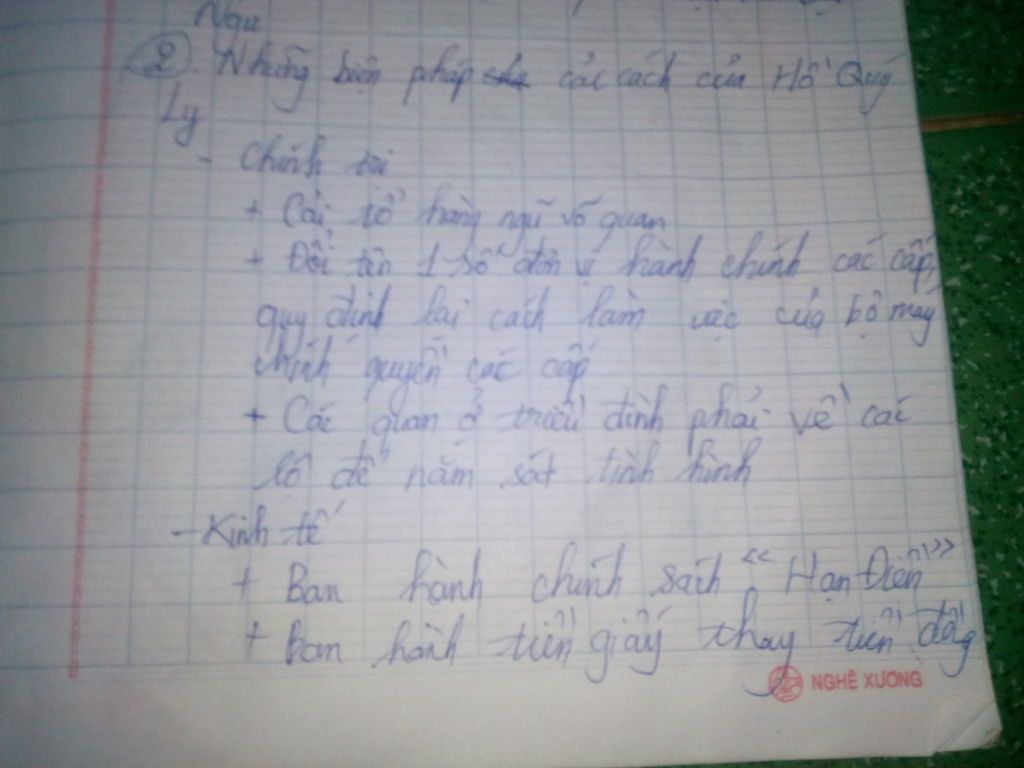 Ngu
2. Những biện pháp cải cách của Hồ Quý
Ly
- Chính trị
+ Cải tổ hàng ngũ võ quan
+ Đổi tên 1 số đơn vị hành chính các cấp,
quy định lại cách làm việc của bộ máy
chính quyền các cấp
+ Các quan ở triều đình phải về các
lộ để nắm sát tình hình
- Kinh tế
+ Ban hành chính sách "Hạn Điền"
+ Ban hành tiền giấy thay tiền đồng
NGHÊ XƯƠNG